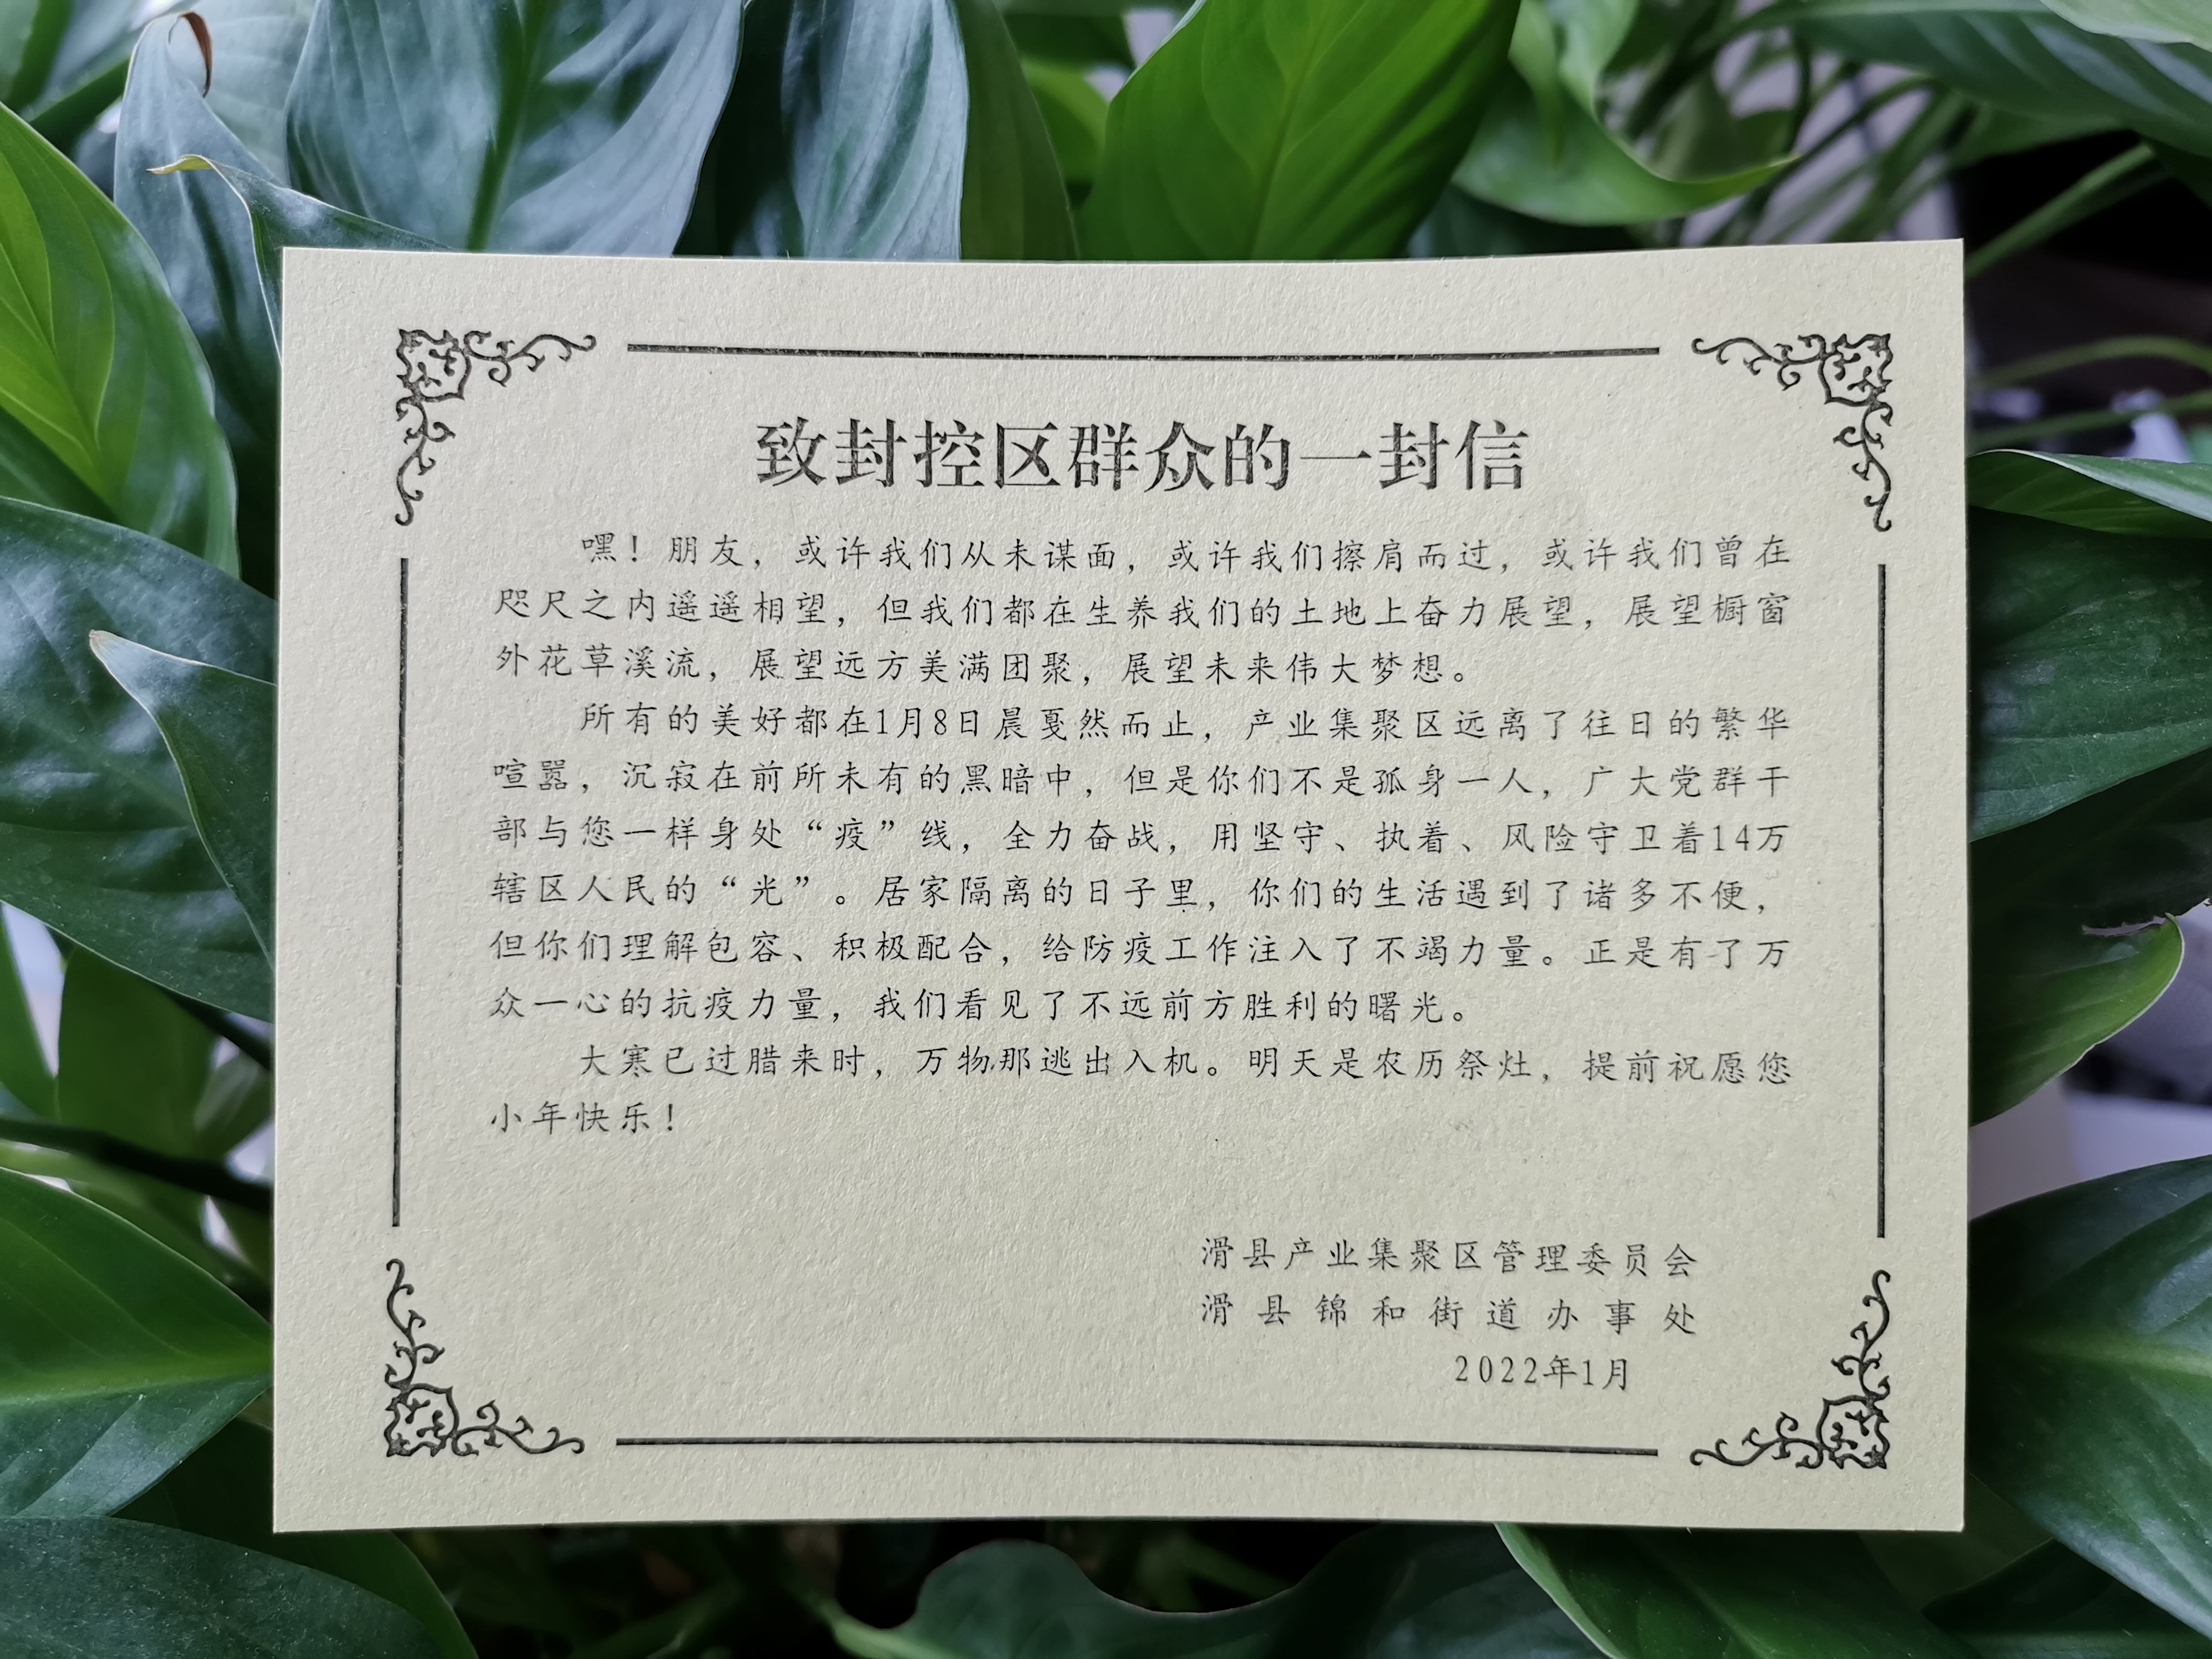 致封控区群众的一封信
嘿！朋友，或许我们从未谋面，或许我们擦肩而过，或许我们曾在
咫尺之内遥遥相望，但我们都在生养我们的土地上奋力展望，展望橱窗
外花草溪流，展望远方美满团聚，展望未来伟大梦想。
所有的美好都在1月8日晨戛然而止，产业集聚区远离了往日的繁华
喧嚣，沉寂在前所未有的黑暗中，但是你们不是孤身一人，广大党群干
部与您一样身处“疫”线，全力奋战，用坚守、执着、风险守卫着14万
辖区人民的“光”。居家隔离的日子里，你们的生活遇到了诸多不便，
但你们理解包容、积极配合，给防疫工作注入了不竭力量。正是有了万
众一心的抗疫力量，我们看见了不远前方胜利的曙光。
大寒已过腊来时，万物那逃出入机。明天是农历祭灶，提前祝愿您
小年快乐！
滑县产业集聚区管理委员会
滑县锦和街道办事处
2022年1月